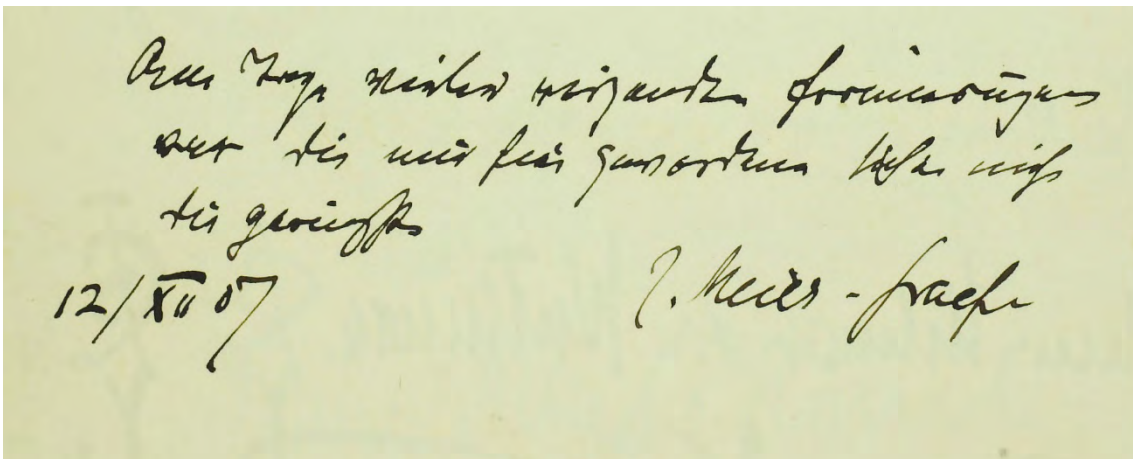 vieler reizenden Erinnerungen
war die mir hier gewordene nicht
die geringste
12/XII 07 J. Meier-Graefe